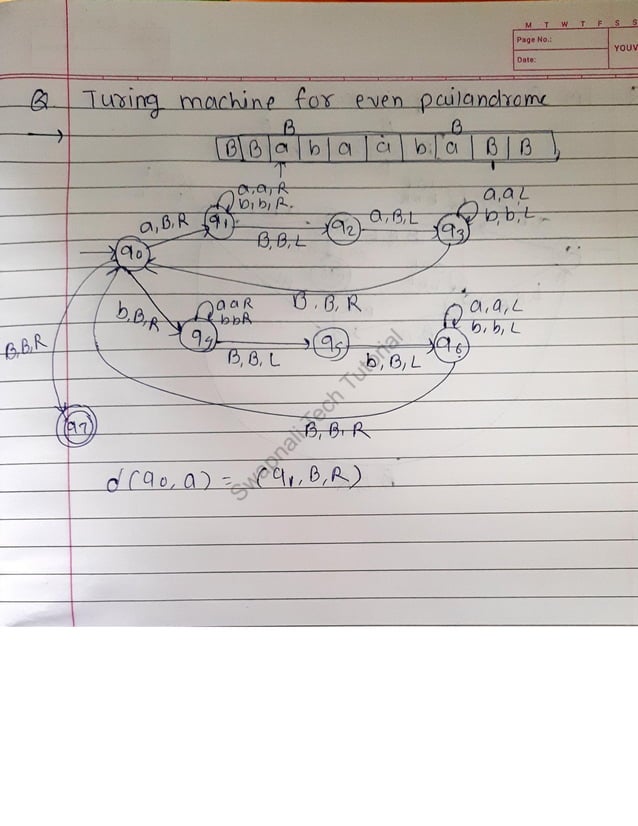 M T W T F S S
Page No.:
Date:
YOUV
Q Turing machine for even pailandrome
B B
B B a b a a b a B B
a,a,R
b,b,R.
a,B,R q1 B,B,L q2 a,B,L q3
a,a,L
b,b,L
q0
B,B,R
b,B,R q4 B,B,L q5 b,B,L q6
aaR
bbR
a,a,L
b,b,L
B,B,R
B,B,R
q7
d(q0,a) = (q1,B,R)
Swapnali Tech Tutorial